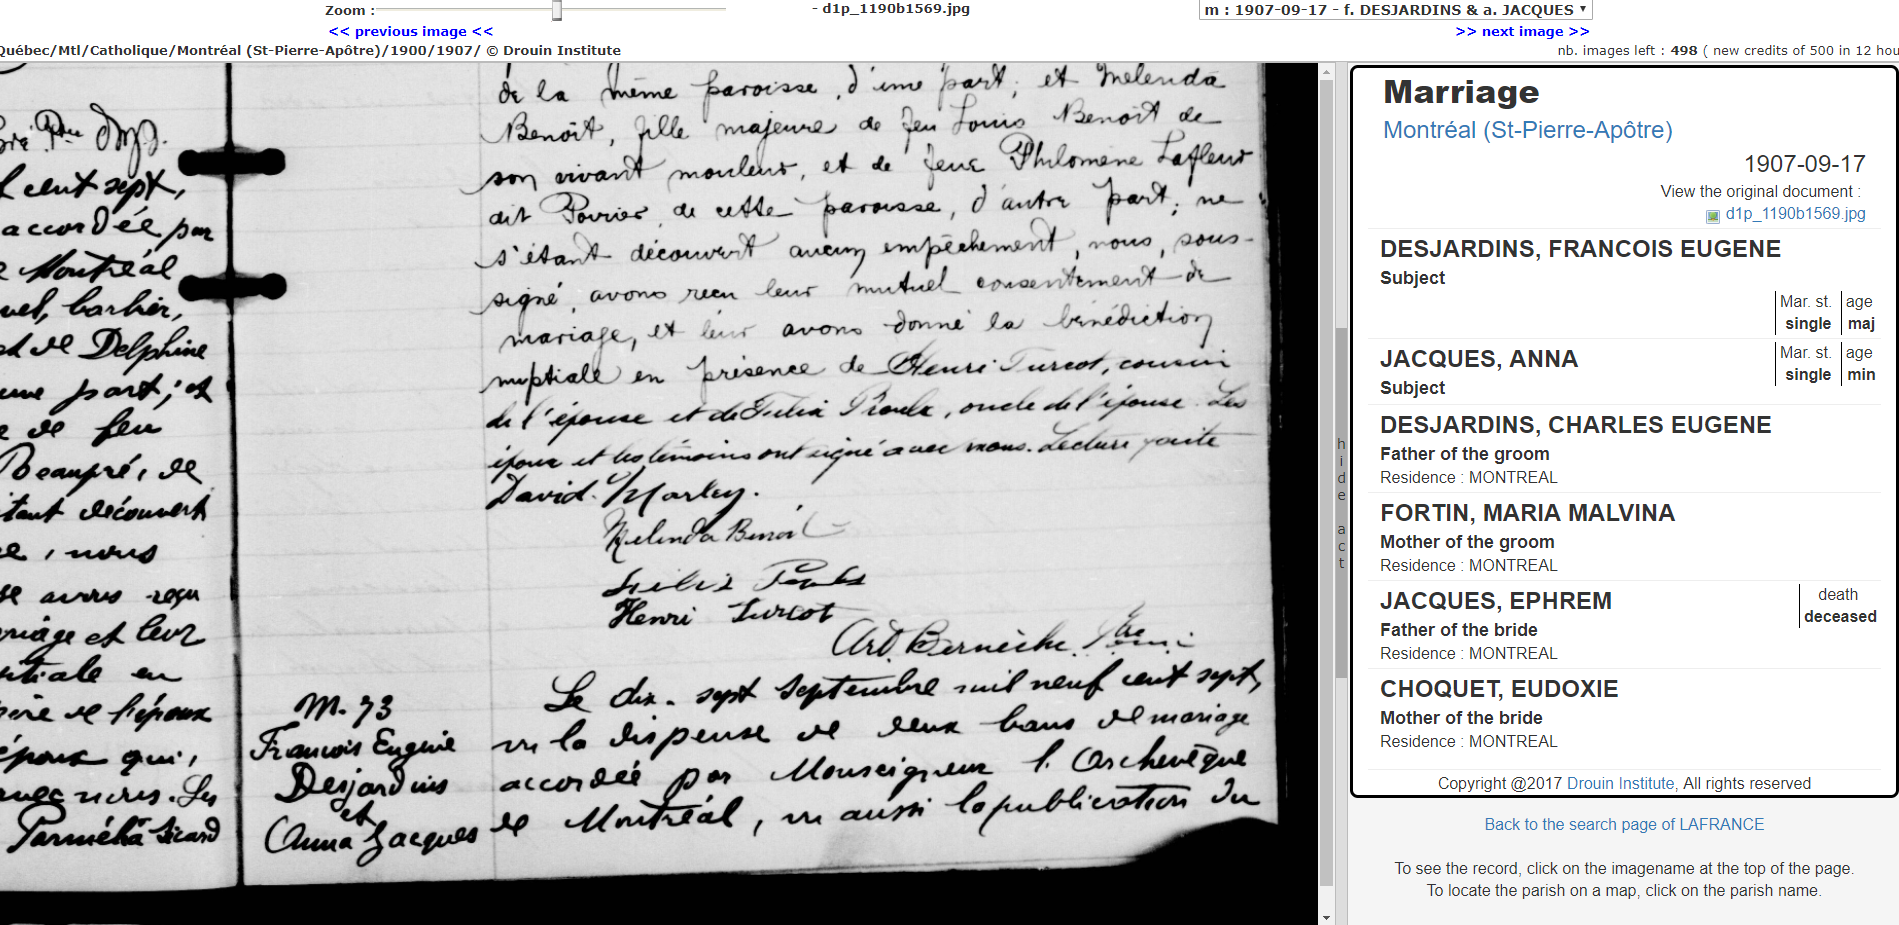 Zoom :
- d1p_1190b1569.jpg
m : 1907-09-17 - f. DESJARDINS & a. JACQUES
<< previous image <<
>> next image >>
Québec/Mtl/Catholique/Montréal (St-Pierre-Apôtre)/1900/1907/ © Drouin Institute
nb. images left : 498 ( new credits of 500 in 12 hou
Ptre
l cent sept,
accordée par
e Montréal
uel, barbier,
et de Delphine
une part; et
e de feu
Beaupré, de
étant découvert
e, nous
se avons reçu
riage et leur
ptiale en
père de l'époux
époux qui,
avec nous. Les
Parméla Sicard
de la même paroisse, d'une part; et Mélenda
Benoit, fille majeure de feu Louis Benoit de
son vivant mouleur, et de feue Philomène Lafleur
dit Poirier, de cette paroisse, d'autre part; ne
s'étant découvert aucun empêchement, nous, sous-
signé, avons reçu leur mutuel consentement de
mariage, et leur avons donné la bénédiction
nuptiale en présence de Henri Turcot, cousin
de l'épouse et de Proulx, oncle de l'épouse. Les
époux et les témoins ont signé avec nous. Lecture faite
David Morley.
Melinda Benoit
Henri Turcot
Ptre
M. 73
François Eugène
Desjardins
et
Anna Jacques
Le dix-sept septembre mil neuf cent sept,
vu la dispense de deux bans de mariage
accordée par Monseigneur l'Archevêque
de Montréal, vu aussi la publication du
hide act
Marriage
Montréal (St-Pierre-Apôtre)
1907-09-17
View the original document :
d1p_1190b1569.jpg
DESJARDINS, FRANCOIS EUGENE
Subject
Mar. st. age
single maj
JACQUES, ANNA
Subject
Mar. st. age
single min
DESJARDINS, CHARLES EUGENE
Father of the groom
Residence : MONTREAL
FORTIN, MARIA MALVINA
Mother of the groom
Residence : MONTREAL
JACQUES, EPHREM
Father of the bride
Residence : MONTREAL
death
deceased
CHOQUET, EUDOXIE
Mother of the bride
Residence : MONTREAL
Copyright @2017 Drouin Institute, All rights reserved
Back to the search page of LAFRANCE
To see the record, click on the imagename at the top of the page.
To locate the parish on a map, click on the parish name.